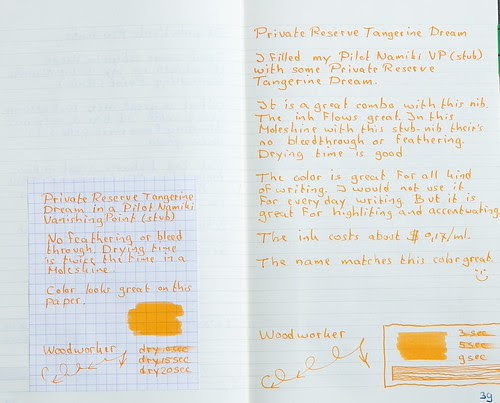 Private Reserve Tangerine
Dream in a Pilot Namiki
Vanishing Point (stub)
No feathering or bleed
through. Drying time
is twice the time in a
Moleskine.
Color looks great on this
paper.
Woodworker
dry 10sec
dry 15sec
dry 20sec
Private Reserve Tangerine Dream
I filled my Pilot Namiki VP (stub)
with some Private Reserve
Tangerine Dream.
It is a great combo with this nib.
The ink flows great. In this
Moleskine with this stub-nib their's
no bleedthrough or feathering.
Drying time is good
The color is great for all kind
of writing. I would not use it
for every day writing. But it is
great for highliting and accentuating.
The ink costs about $ 0,17/ml.
The name matches this color great.
Woodworker
3 sec
5 sec
9 sec
39